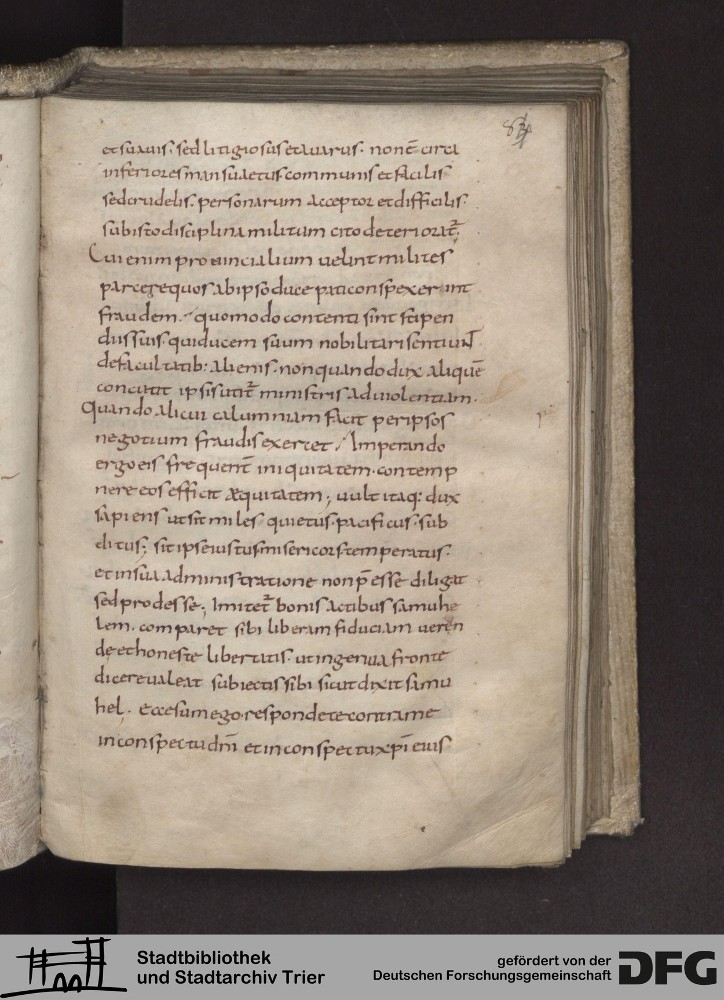 84
et suavis. sed litigiosus et avarus. non ē circa
inferiores mansuaetus. communis et facilis
sed crudelis. personarum acceptor et difficilis.
sub isto disciplina militum cito deteriorat̄.
Cui enim provincialium velint milites
parcere quos ab ipso duce pati conspexerint
fraudem. quomodo contenti sint stipen
diis suis. qui ducem suum nobilitari sentiunt
de facultatib: alienis. non quando dux aliquē
conciat it ipsis utit̄ ministris ad violentiam.
Quando alicui calumniam facit per ipsos
negotium fraudis exercet. Imperando
ergo eis frequent̄ iniquitatem. contemp
nere eos efficit æquitatem; vult itaq: dux
sapiens ut sit miles quietus. pacificus. sub
ditus; sit ipse iustus misericors temperatus.
et in sua administratione non p̄esse diligat
sed prodesse; Imitet̄ bonis actibus samuhe
lem. comparet sibi liberam fiduciam veren
de et honeste libertatis. ut ingenua fronte
dicere valeat subiectis sibi sicut dixit samu
hel. ecce sum ego. respondete contra me
in conspectu dn̄i et in conspectu xp̄i eius
Stadtbibliothek
und Stadtarchiv Trier
gefördert von der
Deutschen Forschungsgemeinschaft
DFG